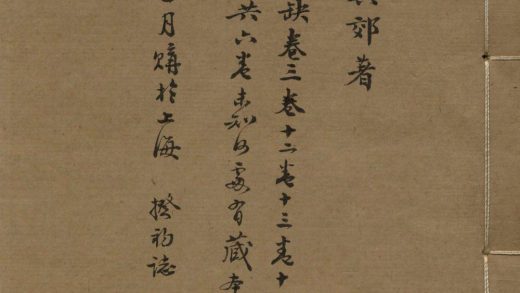 郊著
缺卷三卷十二卷十三卷十
共六卷未知何處有藏本
月購於上海 揆初誌